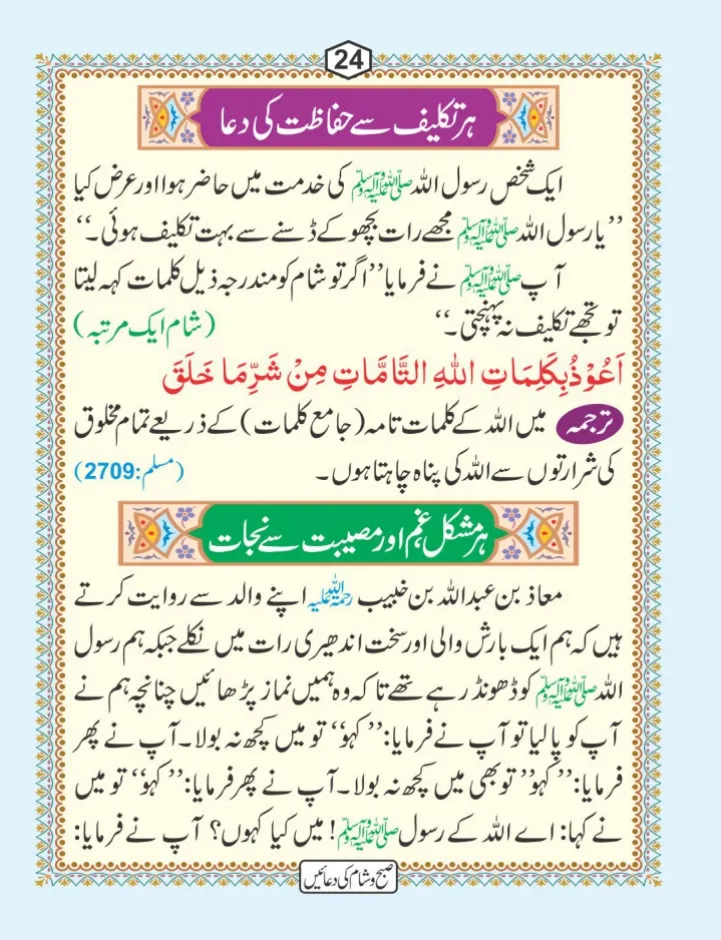 24
ہر تکلیف سے حفاظت کی دعا
ایک شخص رسول اللہ ﷺ کی خدمت میں حاضر ہوا اور عرض کیا
’’یا رسول اللہ ﷺ مجھے رات بچھو کے ڈسنے سے بہت تکلیف ہوئی۔‘‘
آپ ﷺ نے فرمایا ’’اگر تو شام کو مندرجہ ذیل کلمات کہہ لیتا
تو تجھے تکلیف نہ پہنچتی۔‘‘ (شام ایک مرتبہ)
اَعُوْذُ بِكَلِمَاتِ اللهِ التَّامَّاتِ مِنْ شَرِّ مَا خَلَقَ
ترجمہ میں اللہ کے کلمات تامہ (جامع کلمات) کے ذریعے تمام مخلوق
کی شرارتوں سے اللہ کی پناہ چاہتا ہوں۔ (مسلم: 2709)
ہر مشکل غم اور مصیبت سے نجات
معاذ بن عبداللہ بن خبیب رحمۃ اللہ علیہ اپنے والد سے روایت کرتے
ہیں کہ ہم ایک بارش والی اور سخت اندھیری رات میں نکلے جبکہ ہم رسول
اللہ ﷺ کو ڈھونڈ رہے تھے تاکہ وہ ہمیں نماز پڑھائیں چنانچہ ہم نے
آپ کو پا لیا تو آپ نے فرمایا: ’’کہو‘‘ تو میں کچھ نہ بولا۔ آپ نے پھر
فرمایا: ’’کہو‘‘ تو بھی میں کچھ نہ بولا۔ آپ نے پھر فرمایا: ’’کہو‘‘ تو میں
نے کہا: اے اللہ کے رسول ﷺ! میں کیا کہوں؟ آپ نے فرمایا:
صبح و شام کی دعائیں